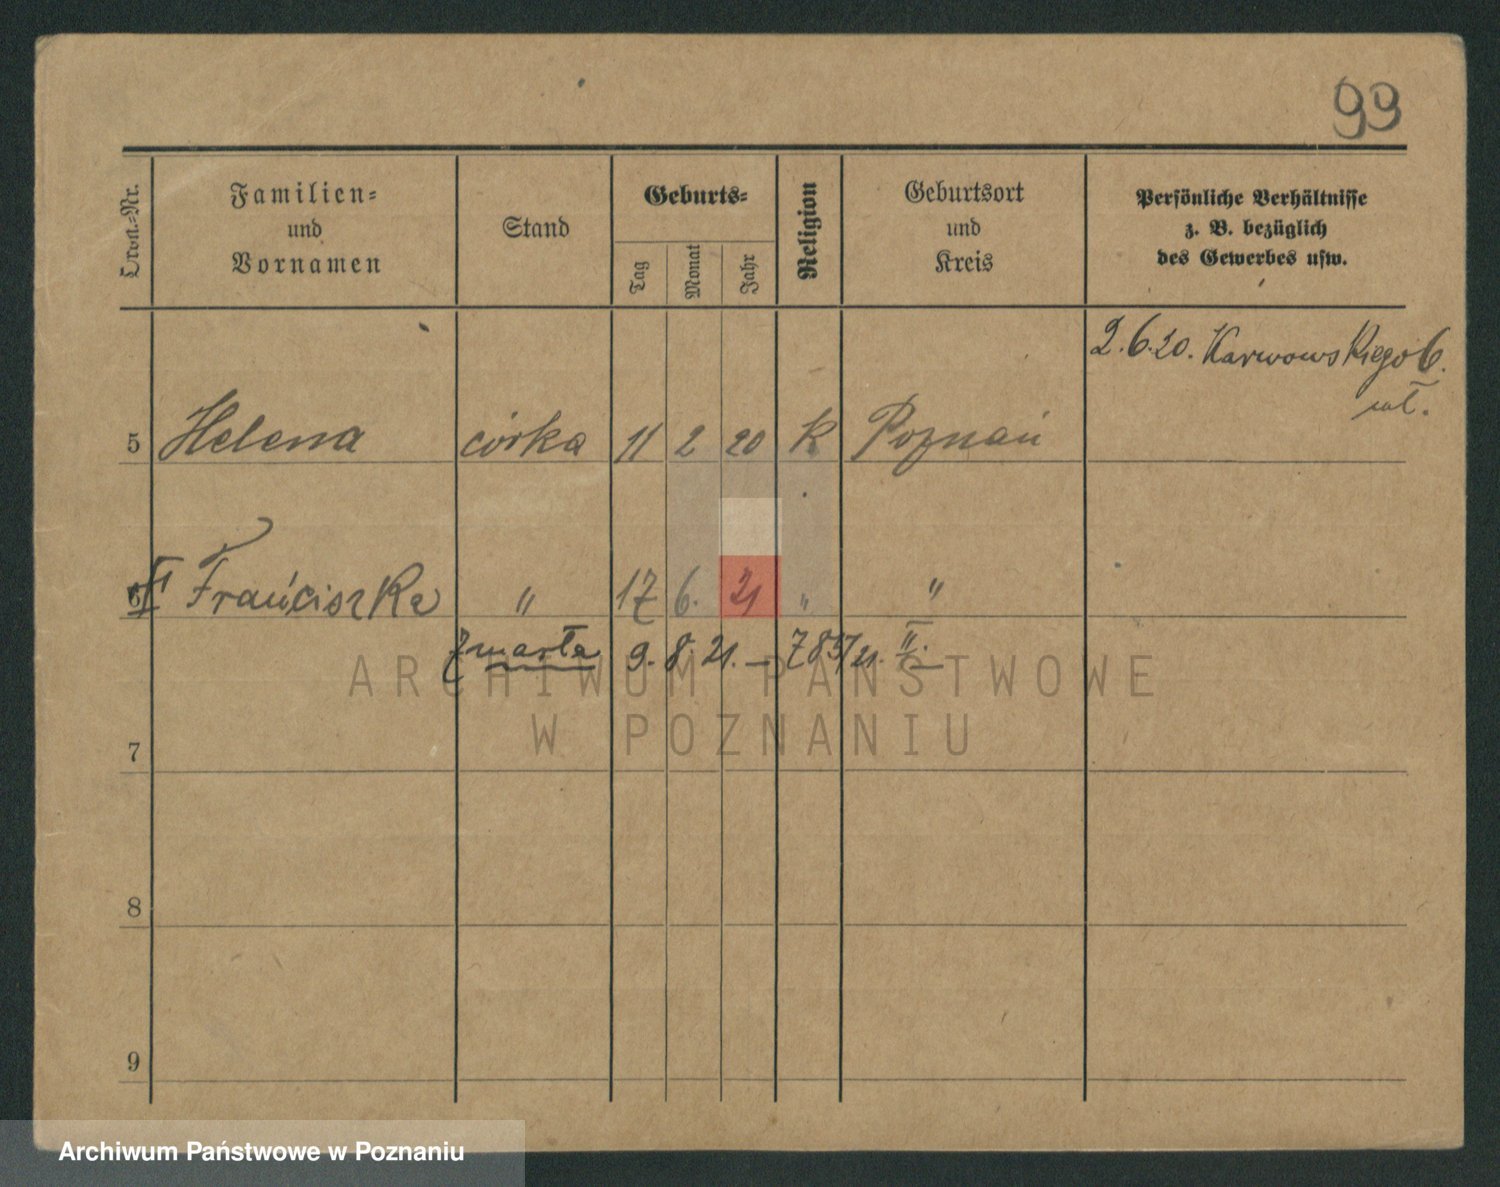 99
Ordn.-Nr.
Familien-
und
Vornamen
Stand
Geburts-
Tag
Monat
Jahr
Religion
Geburtsort
und
Kreis
Persönliche Verhältnisse
z. B. bezüglich
des Gewerbes usw.
2.6.20. Karwowskiego 6.
5 Helena córka 11 2 20 K Poznań
6 Franciszka " 17 6. 21 " "
Zmarła 9. 8. 21. — 785/21. II.
ARCHIWUM PAŃSTWOWE
W POZNANIU
7
8
9
Archiwum Państwowe w Poznaniu